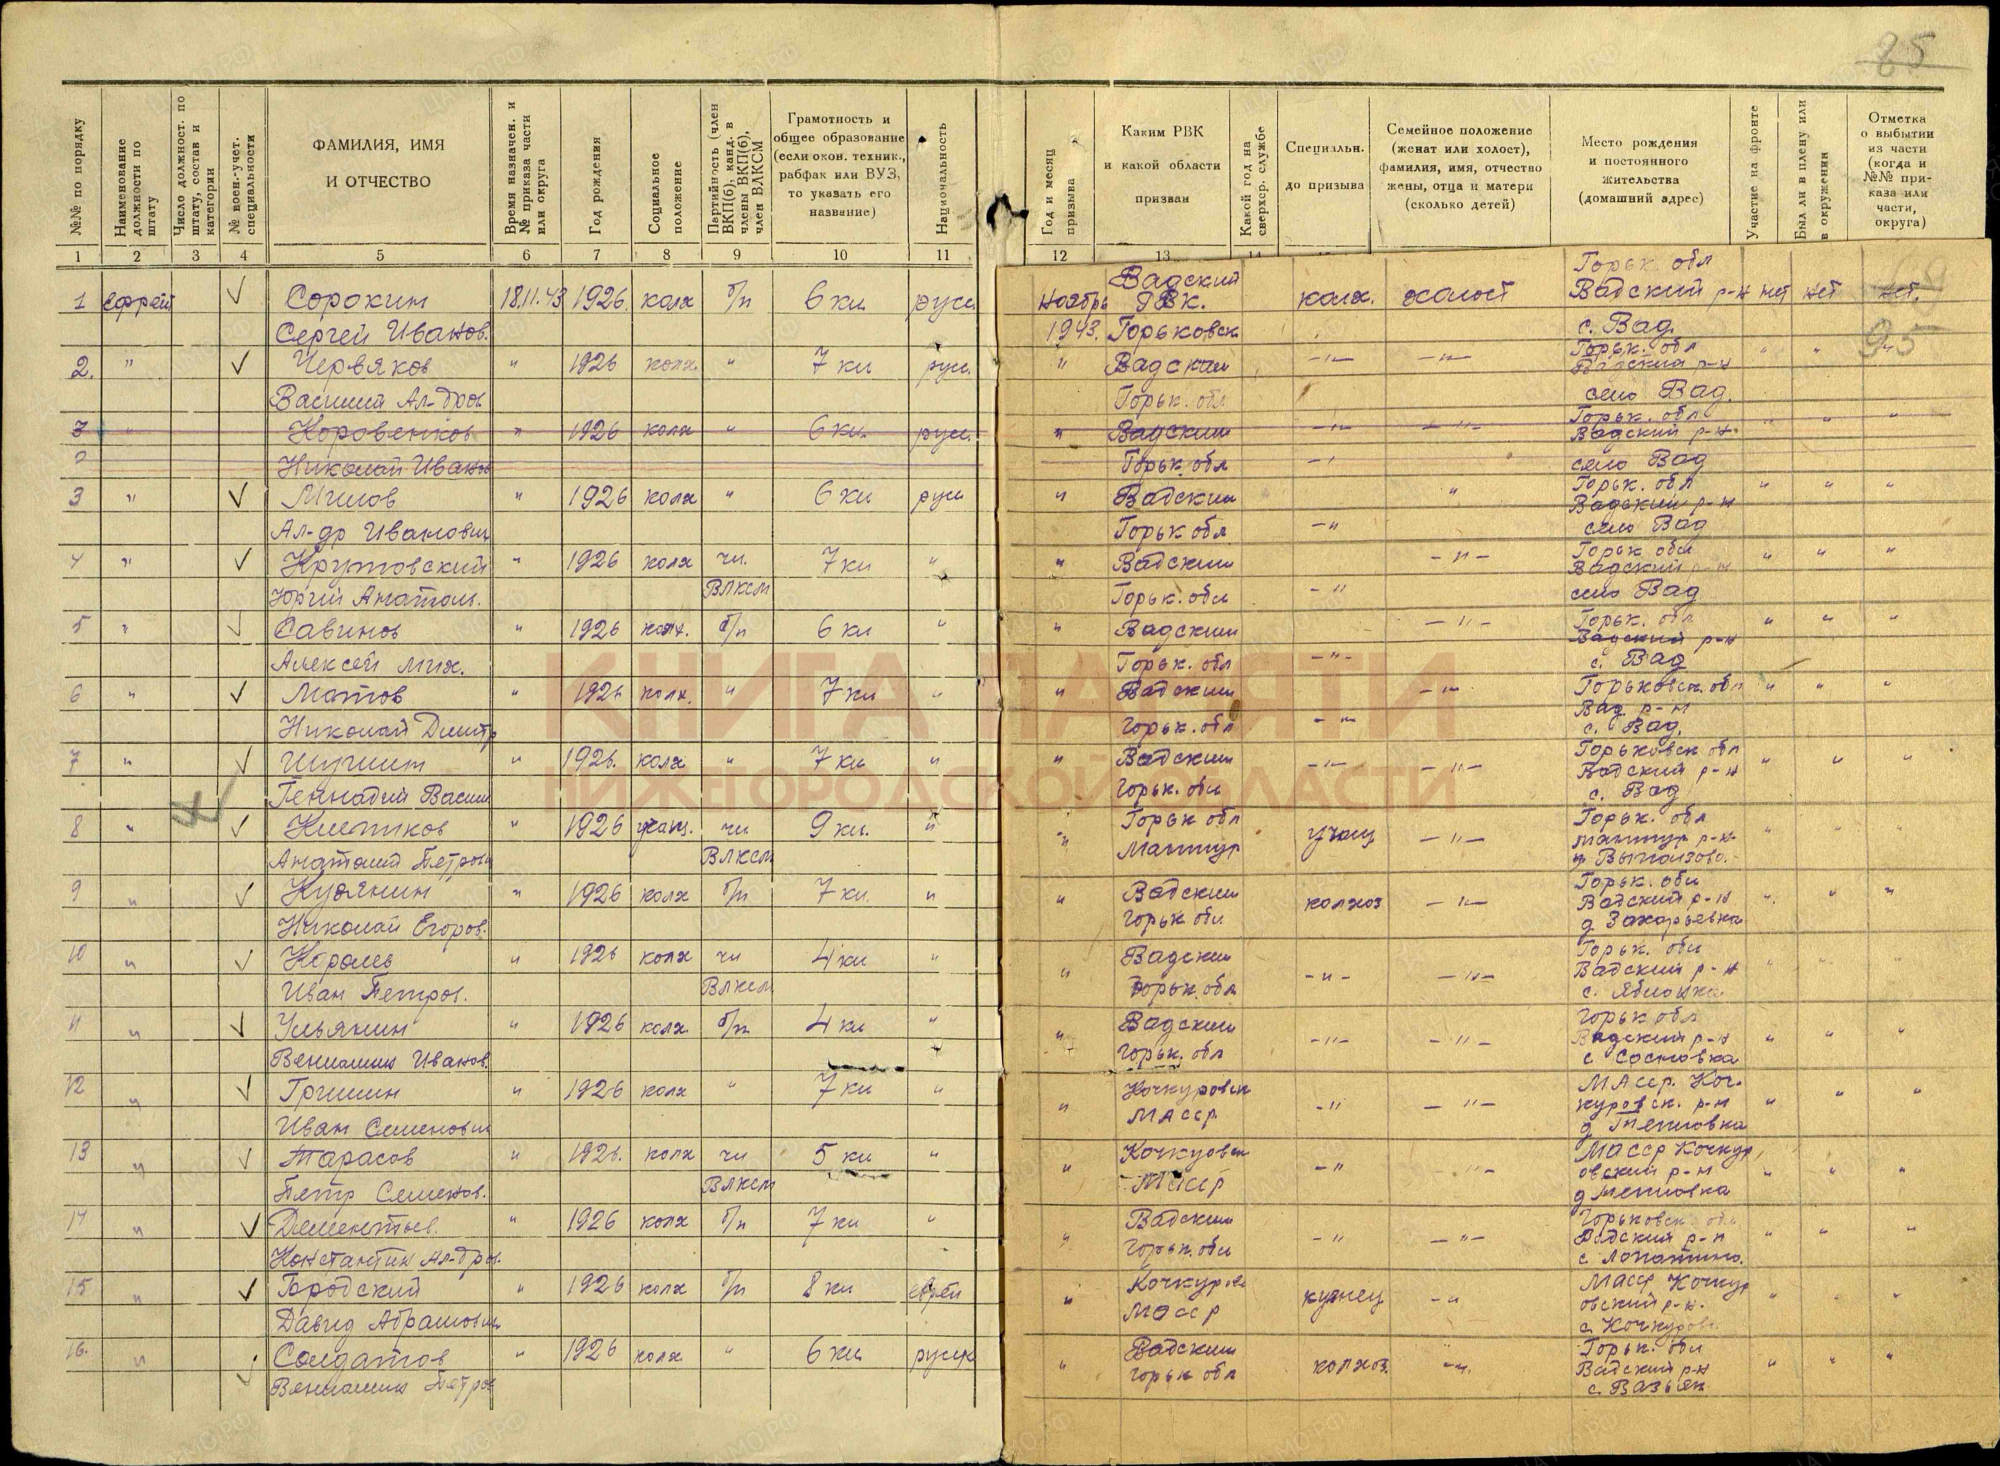 85
№№ по порядку
Наименование должности по штату
Число должност. по штату, состав и категории
№ воен.-учет. специальности
ФАМИЛИЯ, ИМЯ И ОТЧЕСТВО
Время назначен. и № приказа части или округа
Год рождения
Социальное положение
Партийность (член ВКП(б), канд. в члены ВКП(б), член ВЛКСМ
Грамотность и общее образование (если окон. техник., рабфак или ВУЗ, то указать его название)
Национальность
Год и месяц призыва
Каким РВК и какой области призван
Какой год на сверхср. службе
Специальн. до призыва
Семейное положение (женат или холост), фамилия, имя, отчество жены, отца и матери (сколько детей)
Место рождения и постоянного жительства (домашний адрес)
Участие на фронте
Был ли в плену или в окружении
Отметка о выбытии из части (когда и №№ приказа или части, округа)
1 2 3 4 5 6 7 8 9 10 11 12 13
Горьк. обл
1 ефрейт Сорокин 18.11.43 1926 колх б/п 6 кл русс. Ноябрь Вадский РВК. колх. холост Вадский р-н нет нет нет.
Сергей Иванов. 1943. Горьковск с. Вад
95
2. " Червяков " 1926 колх " 7 кл русс. " Вадский -"- -"- Горьк. обл Вадский р-н " "
Василий Ал-дров Горьк. обл село Вад.
3 " Коровенков " 1926 колх " 6 кл. русс. " Вадский -"- -"- Горьк. обл Вадский р-н " "
Николай Иванов Горьк. обл село Вад
3 " Милов " 1926 колх " 6 кл русс " Вадский " Горьк. обл Вадский р-н " " "
Ал-др Иванович Горьк обл -" село Вад
4 " Крутовский " 1926 колх чл. 7 кл " " Вадский -"- Горьк обл Вадский р-н " " "
Юрий Анатоль. ВЛКСМ Горьк. обл -" село Вад
5 " Савинов " 1926 колх. б/п 6 кл " " Вадский -"- Горьк. обл Вадский р-н " " "
Алексей Мих. Горьк. обл -"- с. Вад
6 " Матов " 1926 колх. " 7 кл " " Вадский -"- Горьковск. обл " " "
Николай Дмитр Горьк. обл -"- Вад р-н с. Вад.
7 " 1926. колх " 7 кл " " Вадский -"- -"- Горьковск обл Вадский р-н " " "
Геннадий Васил Горьк. обл с. Вад
8 " Клепиков " 1926 учащ. чл 9 кл. " " Горьк обл учащ -"- Горьк. обл
Анатолий Петрович ВЛКСМ р-н
9 " Кудянин " 1926 колх б/п 7 кл. " " Вадский колхоз -"- Горьк. обл Вадский р-н " " "
Николай Егоров. Горьк обл д. Захарьевка
10 " Король " 1926 колх чл 4 кл " " Вадский -"- -"- Горьк. обл Вадский р-н " " "
Иван Петров. ВЛКСМ Горьк. обл с. Яблонка
11 " Ульянин " 1926 колх б/п 4 кл " " Вадский -"- -"- Горьк обл Вадский р-н " " "
Вениамин Иванов. Горьк. обл с Сосновка
12 " Гришин " 1926 колх " 7 кл " " Кочкуровск -" -"- МАССР. Кочкуровск. р-н " " "
Иван Семенович МАССР д Тепловка
13 " Тарасов " 1926. колх чл 5 кл " " -" -"- МАССР Кочкуровский р-н " " "
Петр Семенов. ВЛКСМ МАССР д Тепловка
14 " Дементьев. " 1926 колх б/п 7 кл " " Вадский -" -"- Горьковск обл Вадский р-н " " "
Константин Ал-дров. Горьк. обл с Лопатино.
15 " Городский " 1926 колх б/п 8 кл еврей " Кочкуров кузнец -" МАССР Кочкуровский р-н. " " "
Давид Абрамович МАССР с. Кочкурово
16. " Солдатов " 1926 колх " 6 кл русск " Вадский колхоз. -"- Горьк. обл Вадский р-н " " "
Вениамин Петров Горьк обл с. Вазьян
КНИГА ПАМЯТИ
НИЖЕГОРОДСКОЙ ОБЛАСТИ
ЦАМО.РФ